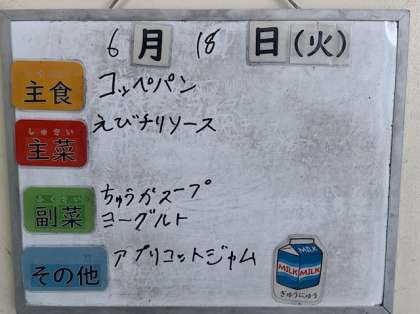 6月18日(火)
主食 コッペパン
しゅさい
主菜 えびチリソース
ふくさい
副菜 ちゅうかスープ
ヨーグルト
その他 アプリコットジャム
MILK
MILK MILK
ぎゅうにゅう